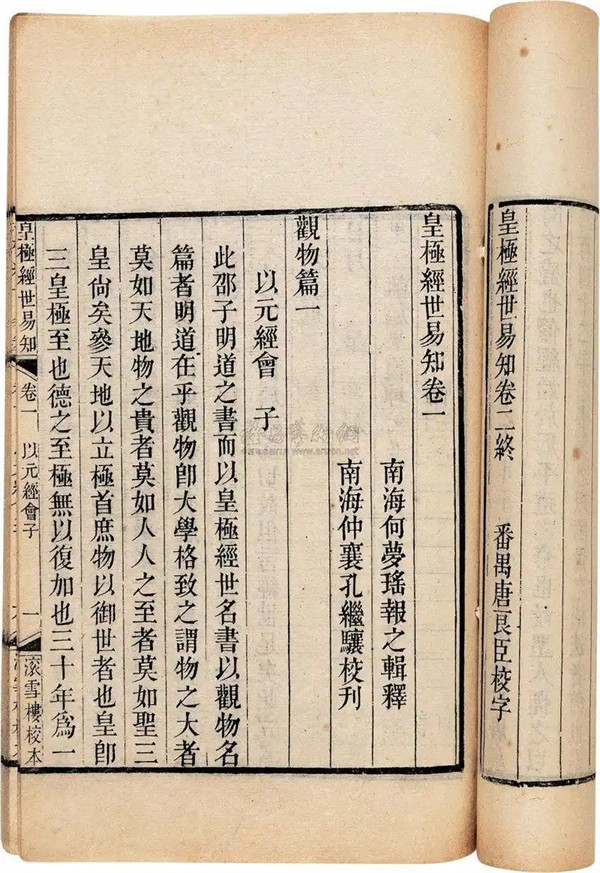 皇極經世易知卷二終　番禺唐良臣校字
皇極經世易知卷一
南海何夢瑤報之輯釋
南海仲襄孔繼驤校刊
觀物篇一
以元經會　子
此邵子明道之書而以皇極經世名書以觀物名
篇者明道在乎觀物卽大學格致之謂物之大者
莫如天地物之貴者莫如人人之至者莫如聖三
皇尙矣參天地以立極首庶物以御世者也皇卽
三皇極至也德之至極無以復加也三十年爲一
皇極經世易知　卷一　以元經會子　一　滚雪樓校本